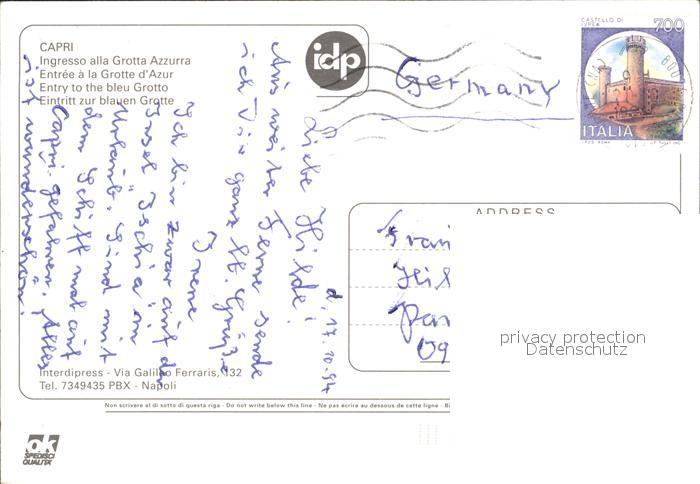 CAPRI
Ingresso alla Grotta Azzurra
Entrée à la Grotte d'Azur
Entry to the bleu Grotto
Eintritt zur blauen Grotte
idp
Germany
CASTELLO DI
IVREA
700
ITALIA
d. 17.10.94
Liebe Hilde!
Aus weiter Ferne sende
ich Dir ganz lb. Grüße
Irene
Ich bin zwar auf der
Insel Ischia im
Urlaub. Sind mit
dem Schiff mal auf
Capri gefahren. Alles
ist wunderschön!
ADDRESS
Frau
Hil
Par
09
privacy protection
Datenschutz
Interdipress - Via Galileo Ferraris, 132
Tel. 7349435 PBX - Napoli
Non scrivere al di sotto di questa riga - Do not write below this line - Ne pas écrire au dessous de cette ligne - Bi
ok
SPEDISCI
QUALITA'